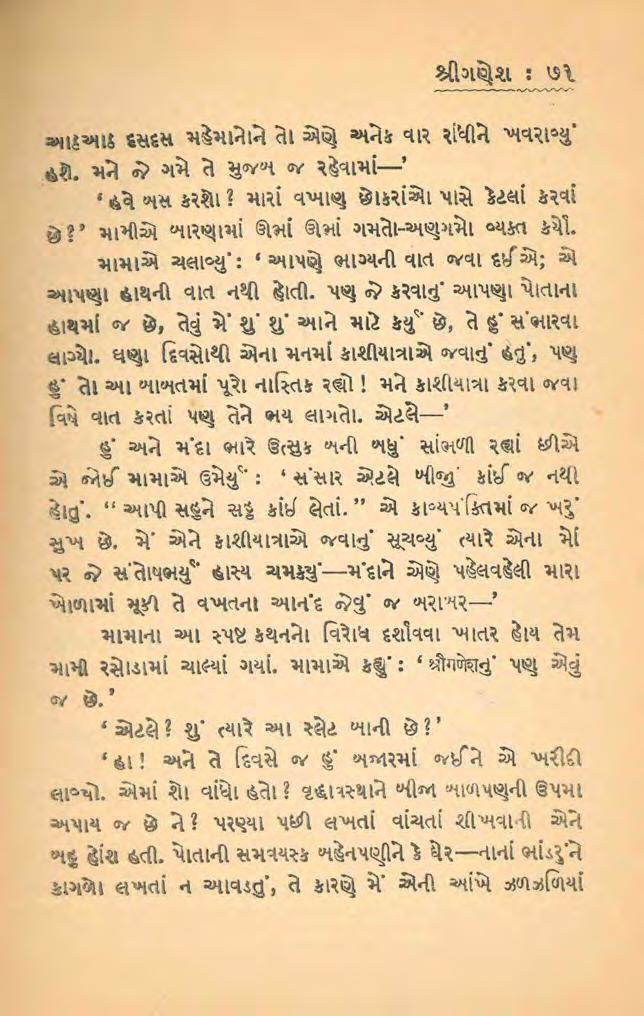 શ્રીગણેશ : ૭૧
આઠઆઠ દસદસ મહેમાનોને તો એણે અનેક વાર રાંધીને ખવરાવ્યું
હશે. મને જે ગમે તે મુજબ જ રહેવામાં—’
‘હવે બસ કરશો? મારાં વખાણ છોકરાંઓ પાસે કેટલાં કરવાં
છે?’ મામીએ બારણામાં ઊભાં ઊભાં ગમતો-અણગમો વ્યક્ત કર્યો.
મામાએ ચલાવ્યું : ‘આપણે ભાગ્યની વાત જવા દઈએ; એ
આપણા હાથની વાત નથી હોતી. પણ જે કરવાનું આપણા પોતાના
હાથમાં જ છે, તેવું મેં શું શું આને માટે કર્યું છે, તે હું સંભારવા
લાગ્યો. ઘણા દિવસોથી એના મનમાં કાશીયાત્રાએ જવાનું હતું, પણ
હું તો આ બાબતમાં પૂરો નાસ્તિક રહ્યો! મને કાશીયાત્રા કરવા જવા
વિષે વાત કરતાં પણ તેને ભય લાગતો. એટલે—’
હું અને મંદા ભારે ઉત્સુક બની બધું સાંભળી રહ્યાં છીએ
એ જોઈ મામાએ ઉમેર્યું : ‘સંસાર એટલે બીજું કાંઈ જ નથી
હોતું. “આપી સહુને સહુ કાંઈ લેતાં.” એ કાવ્યપંક્તિમાં જ ખરું
સુખ છે. મેં એને કાશીયાત્રાએ જવાનું સૂચવ્યું ત્યારે એના મોં
પર જે સંતોષભર્યું હાસ્ય ચમક્યું—મંદાને એણે પહેલવહેલી મારા
ખોળામાં મૂકી તે વખતના આનંદ જેવું જ બરાબર—’
મામાના આ સ્પષ્ટ કથનનો વિરોધ દર્શાવવા ખાતર હોય તેમ
મામી રસોડામાં ચાલ્યાં ગયાં. મામાએ કહ્યું : ‘શ્રીગણેશનું પણ એવું
જ છે.’
‘એટલે? શું ત્યારે આ સ્લેટ બાની છે?’
‘હા! અને તે દિવસે જ હું બજારમાં જઈને એ ખરીદી
લાવ્યો. એમાં શો વાંધો હતો? વૃદ્ધાવસ્થાને બીજા બાળપણની ઉપમા
અપાય જ છે ને? પરણ્યા પછી લખતાં વાંચતાં શીખવાની એને
બહુ હોંશ હતી. પોતાની સમવયસ્ક બહેનપણીને કે ઘેર—નાનાં ભાંડરુંને
કાગળો લખતાં ન આવડતું, તે કારણે મેં એની આંખે ઝળઝળિયાં